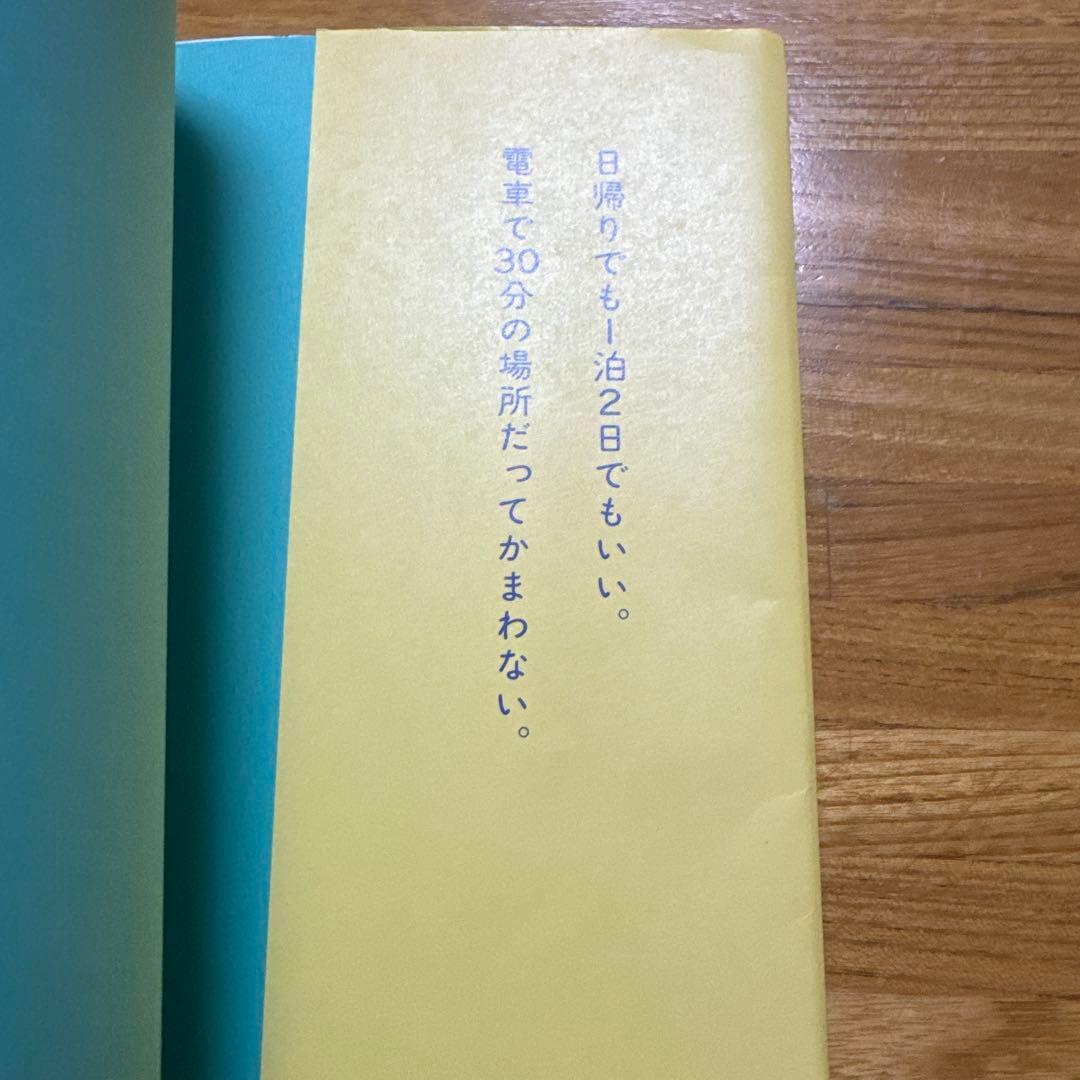 日帰りでも1泊2日でもいい。
電車で30分の場所だってかまわない。